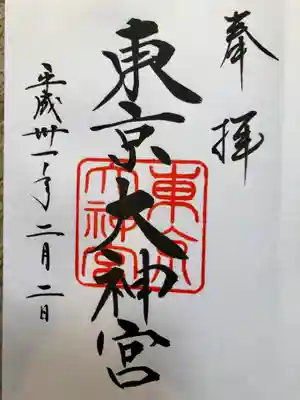 奉拝
東京大神宮
平成卅一年二月二日
東京大神宮